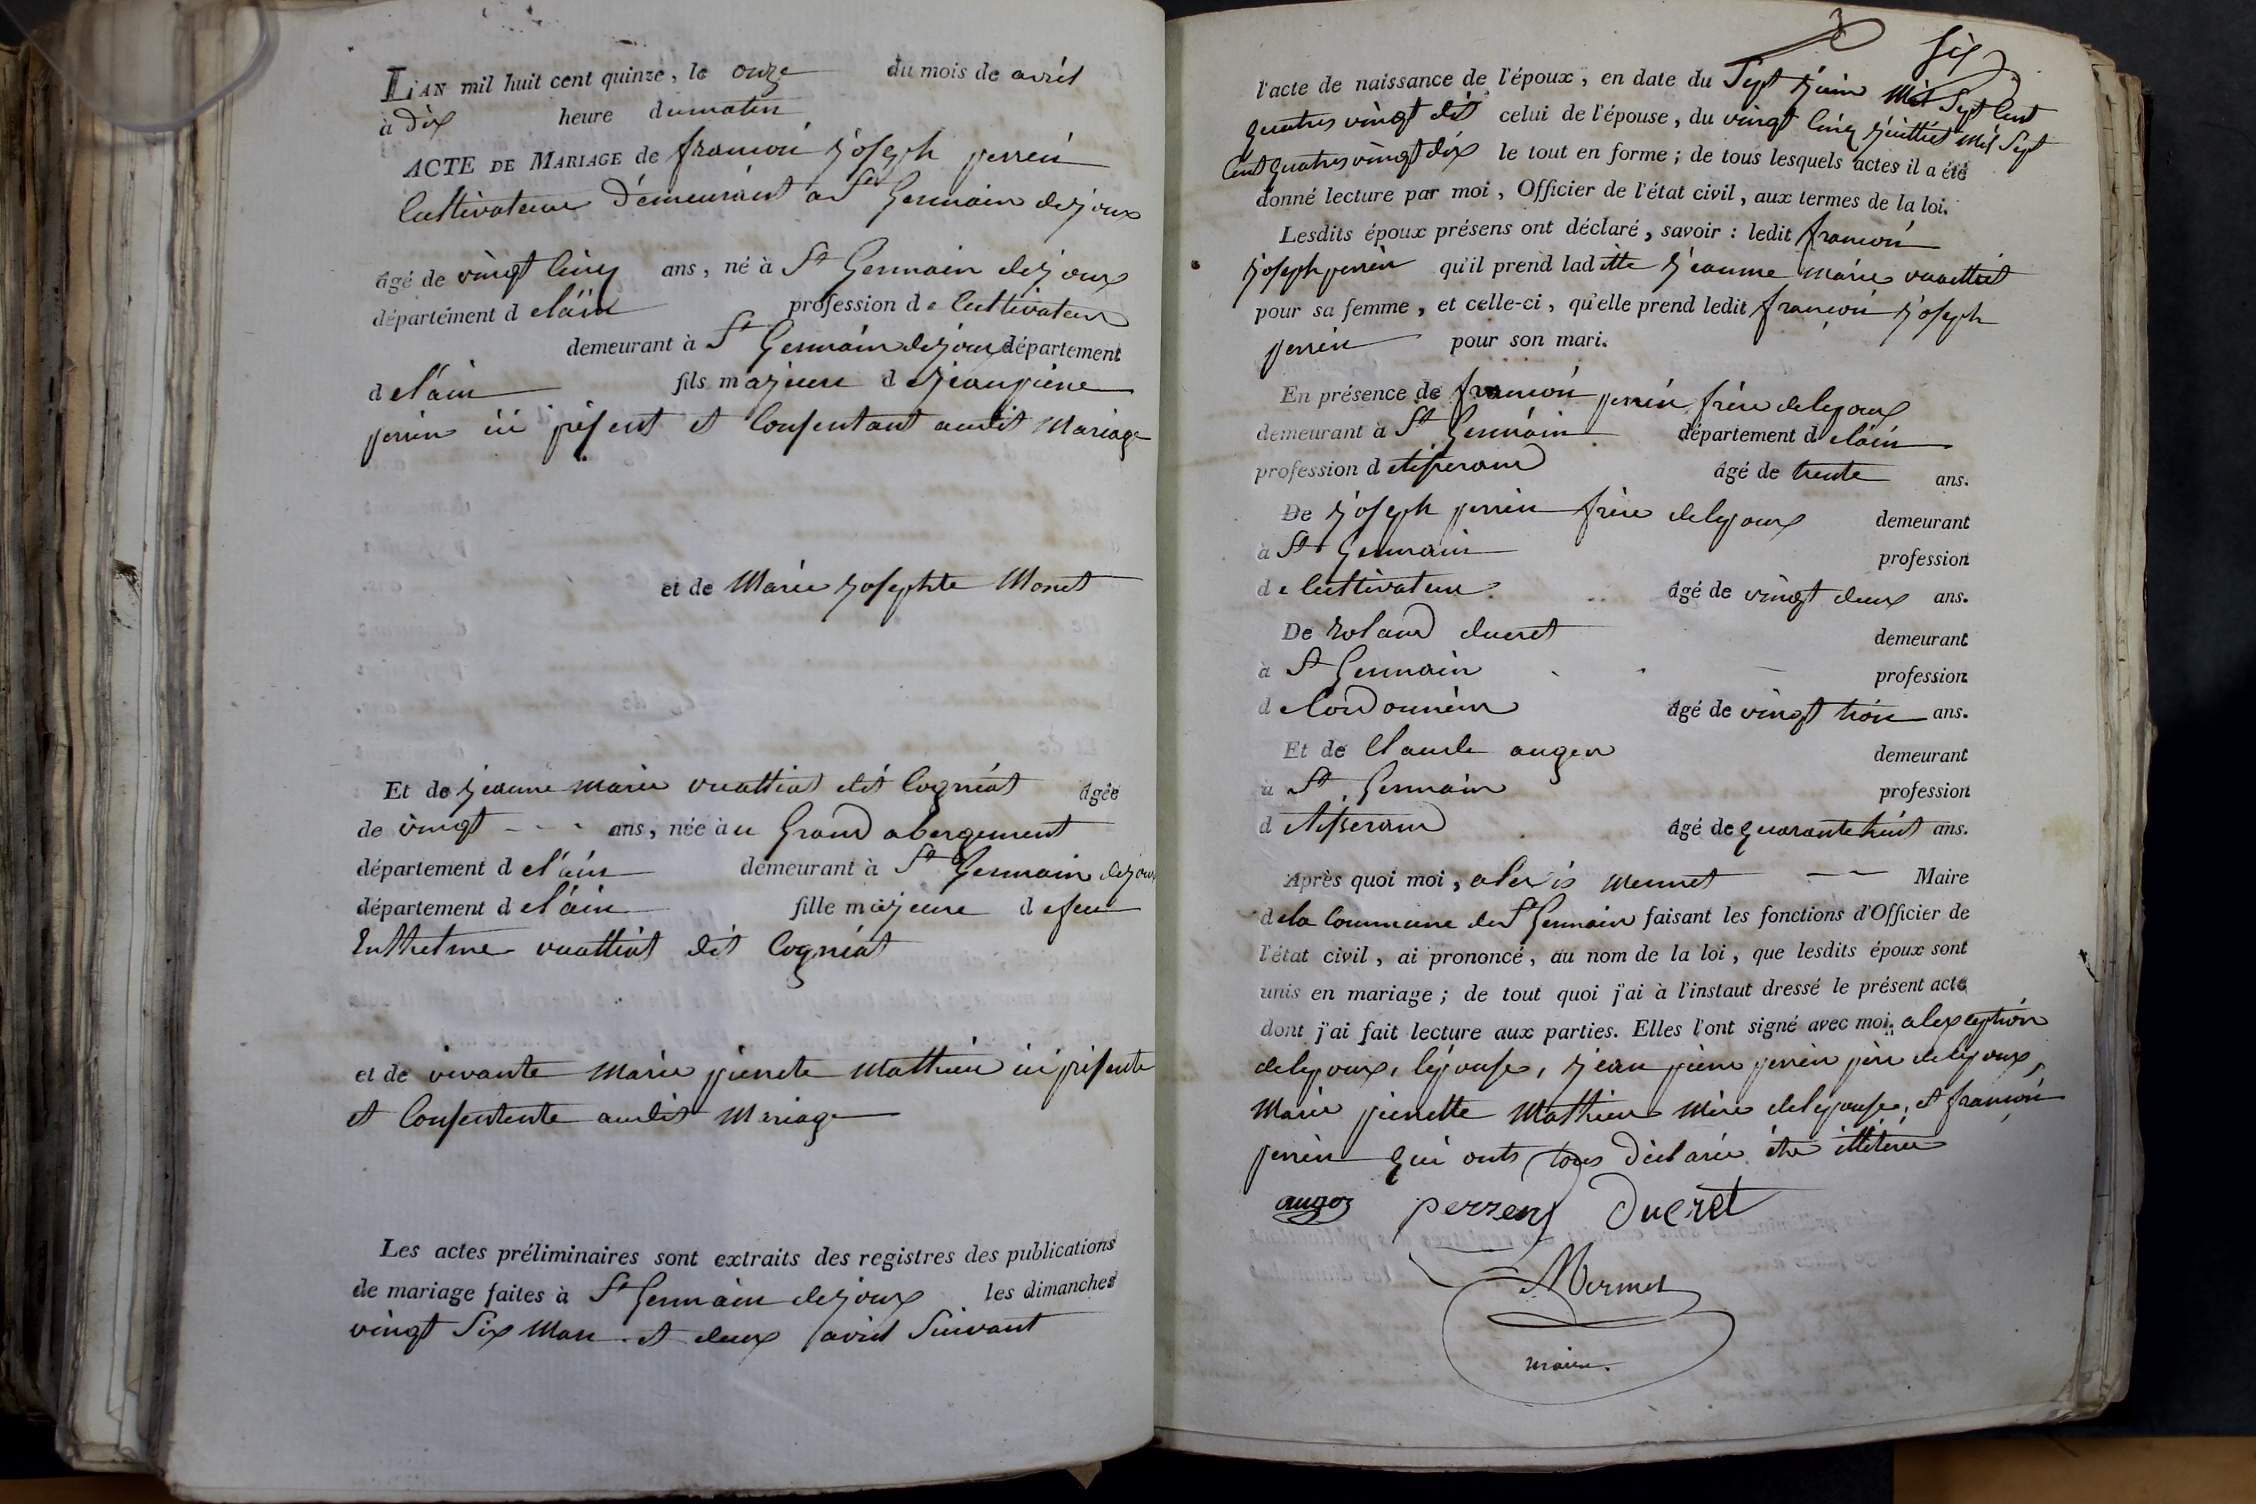 L'AN mil huit cent quinze, le onze du mois de avril
à dix heure du matin
ACTE DE MARIAGE de francoi joseph perrin
Cultivateur demeurant a St Germain dejoux
âgé de vingt cinq ans, né à St Germain dejoux
département d el'ain profession d e Cultivateur
demeurant à St Germain dejoux département
d el'ain fils majeure d ejean piere
perrin ici présent et Consentant audit Mariage
et de Marie josephte Monet
Et de jeanne marie vuattiat dit Cogniat âgée
de vingt - - - ans, née àu Grand abergement
département d el'ain demeurant à St Germain dejoux
département d el'ain fille majeure d efeu
Enthelme vuattiat dit Cogniat
et de vivante Marie pierrete Mathieu ici présente
et Consentente audit Mariage
Les actes préliminaires sont extraits des registres des publications
de mariage faites à St Germain dejoux les dimanches
vingt Six Mars et deux avril Suivant
Six
l'acte de naissance de l'époux, en date du Sept juin Mil Sept Cent
quatres vingt dit celui de l'épouse, du vingt Cinq juilliet Mil Sept
Cent quatres vingt dix le tout en forme; de tous lesquels actes il a été
donné lecture par moi, Officier de l'état civil, aux termes de la loi.
Lesdits époux présens ont déclaré, savoir: ledit francoi
joseph perrin qu'il prend lad itte jeanne Marie vuattiat
pour sa femme, et celle-ci, qu'elle prend ledit françoi joseph
perrin pour son mari.
En présence de francoi perrin frère delepoux
demeurant à St Germain département d el'ain
profession d etisserand âgé de trente ans.
De joseph perrin frère delepoux demeurant
à St Germain profession
d e Cultivateur âgé de vingt deux ans.
De Roland ducret demeurant
à St Germain profession
d eCordonnier âgé de vingt trois ans.
Et de Claude auger demeurant
à St Germain profession
d etisserand âgé de quarante huit ans.
Après quoi moi, alexis Mermet Maire
d ela Commune de St Germain faisant les fonctions d'Officier de
l'état civil, ai prononcé, au nom de la loi, que lesdits époux sont
unis en mariage; de tout quoi j'ai à l'instaut dressé le présent acte
dont j'ai fait lecture aux parties. Elles l'ont signé avec moi, alexception
delepoux, lépouse, jean piere perrin père delepoux,
Marie pierrette Mathieu Mère delepouse, et françoi
perrin qui onts tous déclarée être illitérée
auger perren Ducret
Mermet
maire.